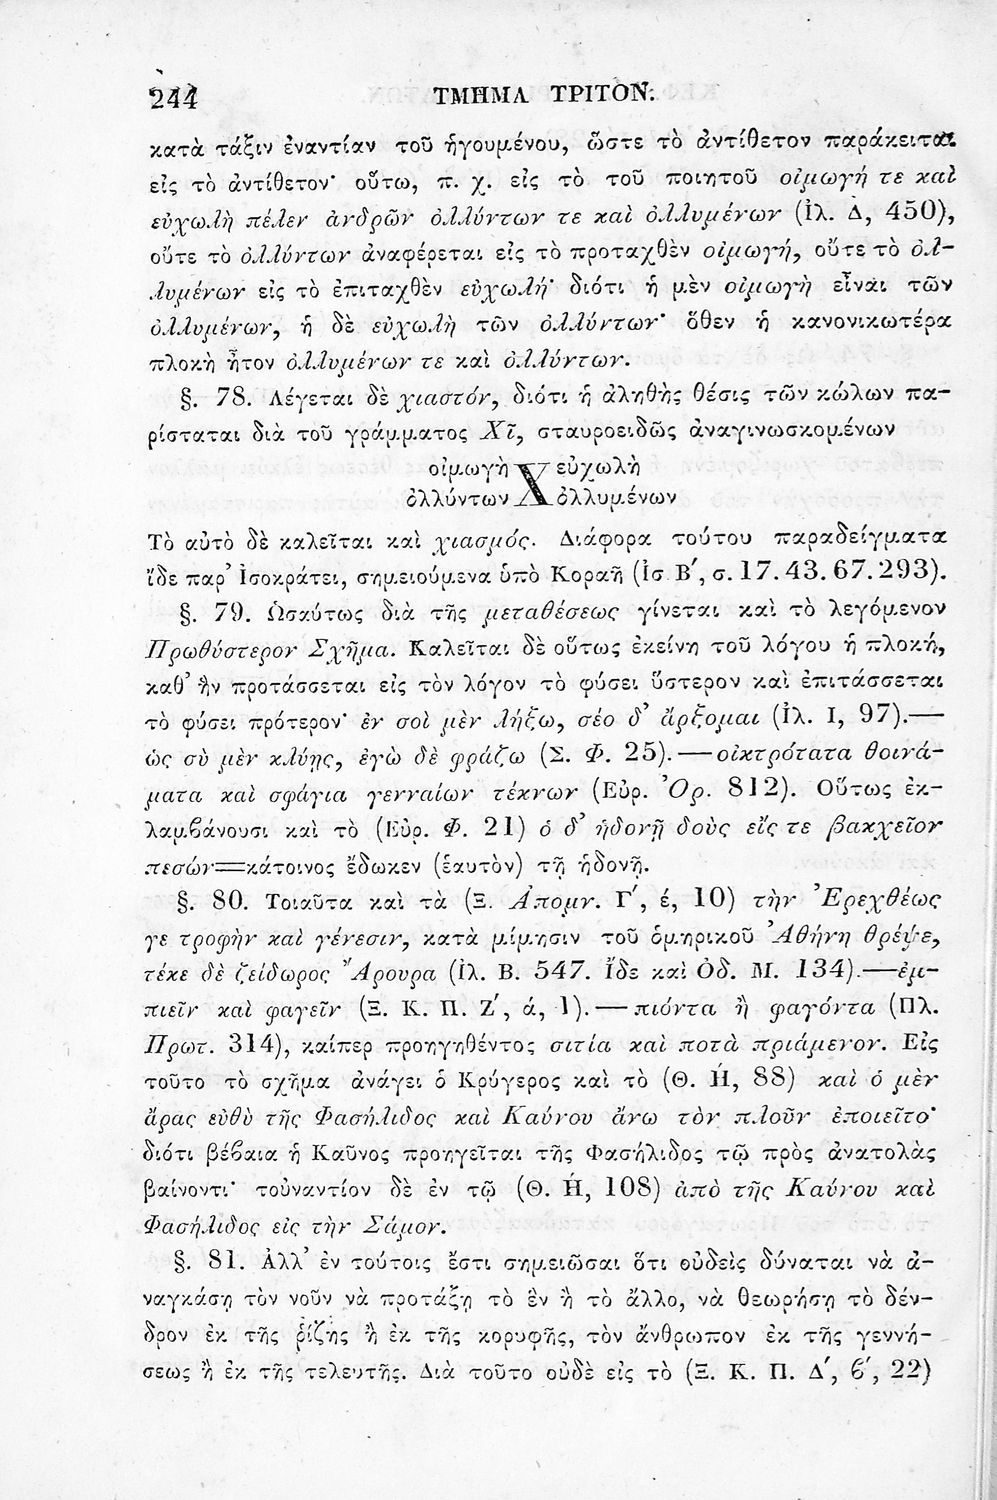 244 ΤΜΗΜΑ ΤΡΙΤΟΝ.
κατὰ τάξιν ἐναντίαν τοῦ ἡγουμένου, ὥστε τὸ ἀντίθετον παράκειται
εἰς τὸ ἀντίθετον· οὕτω, π. χ. εἰς τὸ τοῦ ποιητοῦ οἰμωγή τε καὶ
εὐχωλὴ πέλεν ἀνδρῶν ὀλλύντων τε καὶ ὀλλυμένων (Ἰλ. Δ, 450),
οὔτε τὸ ὀλλύντων ἀναφέρεται εἰς τὸ προταχθὲν οἰμωγή, οὔτε τὸ ὀλ-
λυμένων εἰς τὸ ἐπιταχθὲν εὐχωλή· διότι ἡ μὲν οἰμωγὴ εἶναι τῶν
ὀλλυμένων, ἡ δὲ εὐχωλὴ τῶν ὀλλύντων· ὅθεν ἡ κανονικωτέρα
πλοκὴ ἦτον ὀλλυμένων τε καὶ ὀλλύντων.
§. 78. Λέγεται δὲ χιαστόν, διότι ἡ ἀληθὴς θέσις τῶν κώλων πα-
ρίσταται διὰ τοῦ γράμματος Χῖ, σταυροειδῶς ἀναγινωσκομένων
οἰμωγὴ Χ εὐχωλὴ
ὀλλύντων ὀλλυμένων
Τὸ αὐτὸ δὲ καλεῖται καὶ χιασμός. Διάφορα τούτου παραδείγματα
ἴδε παρ’ Ἰσοκράτει, σημειούμενα ὑπὸ Κοραῆ (Ἰσ Β΄, σ. 17. 43. 67. 293).
§. 79. Ὡσαύτως διὰ τῆς μεταθέσεως γίνεται καὶ τὸ λεγόμενον
Πρωθύστερον Σχῆμα. Καλεῖται δὲ οὕτως ἐκείνη τοῦ λόγου ἡ πλοκή,
καθ’ ἣν προτάσσεται εἰς τὸν λόγον τὸ φύσει ὕστερον καὶ ἐπιτάσσεται
τὸ φύσει πρότερον· ἐν σοὶ μὲν λήξω, σέο δ’ ἄρξομαι (Ἰλ. Ι, 97).—
ὡς σὺ μὲν κλύῃς, ἐγὼ δὲ φράζω (Σ. Φ. 25).—οἰκτρότατα θοινά-
ματα καὶ σφάγια γενναίων τέκνων (Εὐρ. Ὀρ. 812). Οὕτως ἐκ-
λαμβάνουσι καὶ τὸ (Εὐρ. Φ. 21) ὁ δ’ ἡδονῇ δοὺς εἴς τε βακχεῖον
πεσών=κάτοινος ἔδωκεν (ἑαυτὸν) τῇ ἡδονῇ.
§. 80. Τοιαῦτα καὶ τὰ (Ξ. Ἀπομν. Γ΄, έ, 10) τὴν Ἐρεχθέως
γε τροφὴν καὶ γένεσιν, κατὰ μίμησιν τοῦ ὁμηρικοῦ Ἀθήνη θρέψε,
τέκε δὲ ζείδωρος Ἄρουρα (Ἰλ. Β. 547. Ἴδε καὶ Ὀδ. Μ. 134).—ἐμ-
πιεῖν καὶ φαγεῖν (Ξ. Κ. Π. Ζ΄, ά, 1).—πιόντα ἢ φαγόντα (Πλ.
Πρωτ. 314), καίπερ προηγηθέντος σιτία καὶ ποτὰ πριάμενον. Εἰς
τοῦτο τὸ σχῆμα ἀνάγει ὁ Κρύγερος καὶ τὸ (Θ. Ή, 88) καὶ ὁ μὲν
ἄρας εὐθὺ τῆς Φασήλιδος καὶ Καύνου ἄνω τὸν πλοῦν ἐποιεῖτο·
διότι βέβαια ἡ Καῦνος προηγεῖται τῆς Φασήλιδος τῷ πρὸς ἀνατολὰς
βαίνοντι· τοὐναντίον δὲ ἐν τῷ (Θ. Ή, 108) ἀπὸ τῆς Καύνου καὶ
Φασήλιδος εἰς τὴν Σάμον.
§. 81. Ἀλλ’ ἐν τούτοις ἔστι σημειῶσαι ὅτι οὐδεὶς δύναται νὰ ἀ-
ναγκάσῃ τὸν νοῦν νὰ προτάξῃ τὸ ἓν ἢ τὸ ἄλλο, νὰ θεωρήσῃ τὸ δέν-
δρον ἐκ τῆς ῥίζης ἢ ἐκ τῆς κορυφῆς, τὸν ἄνθρωπον ἐκ τῆς γεννή-
σεως ἢ ἐκ τῆς τελευτῆς. Διὰ τοῦτο οὐδὲ εἰς τὸ (Ξ. Κ. Π. Δ΄, β΄, 22)